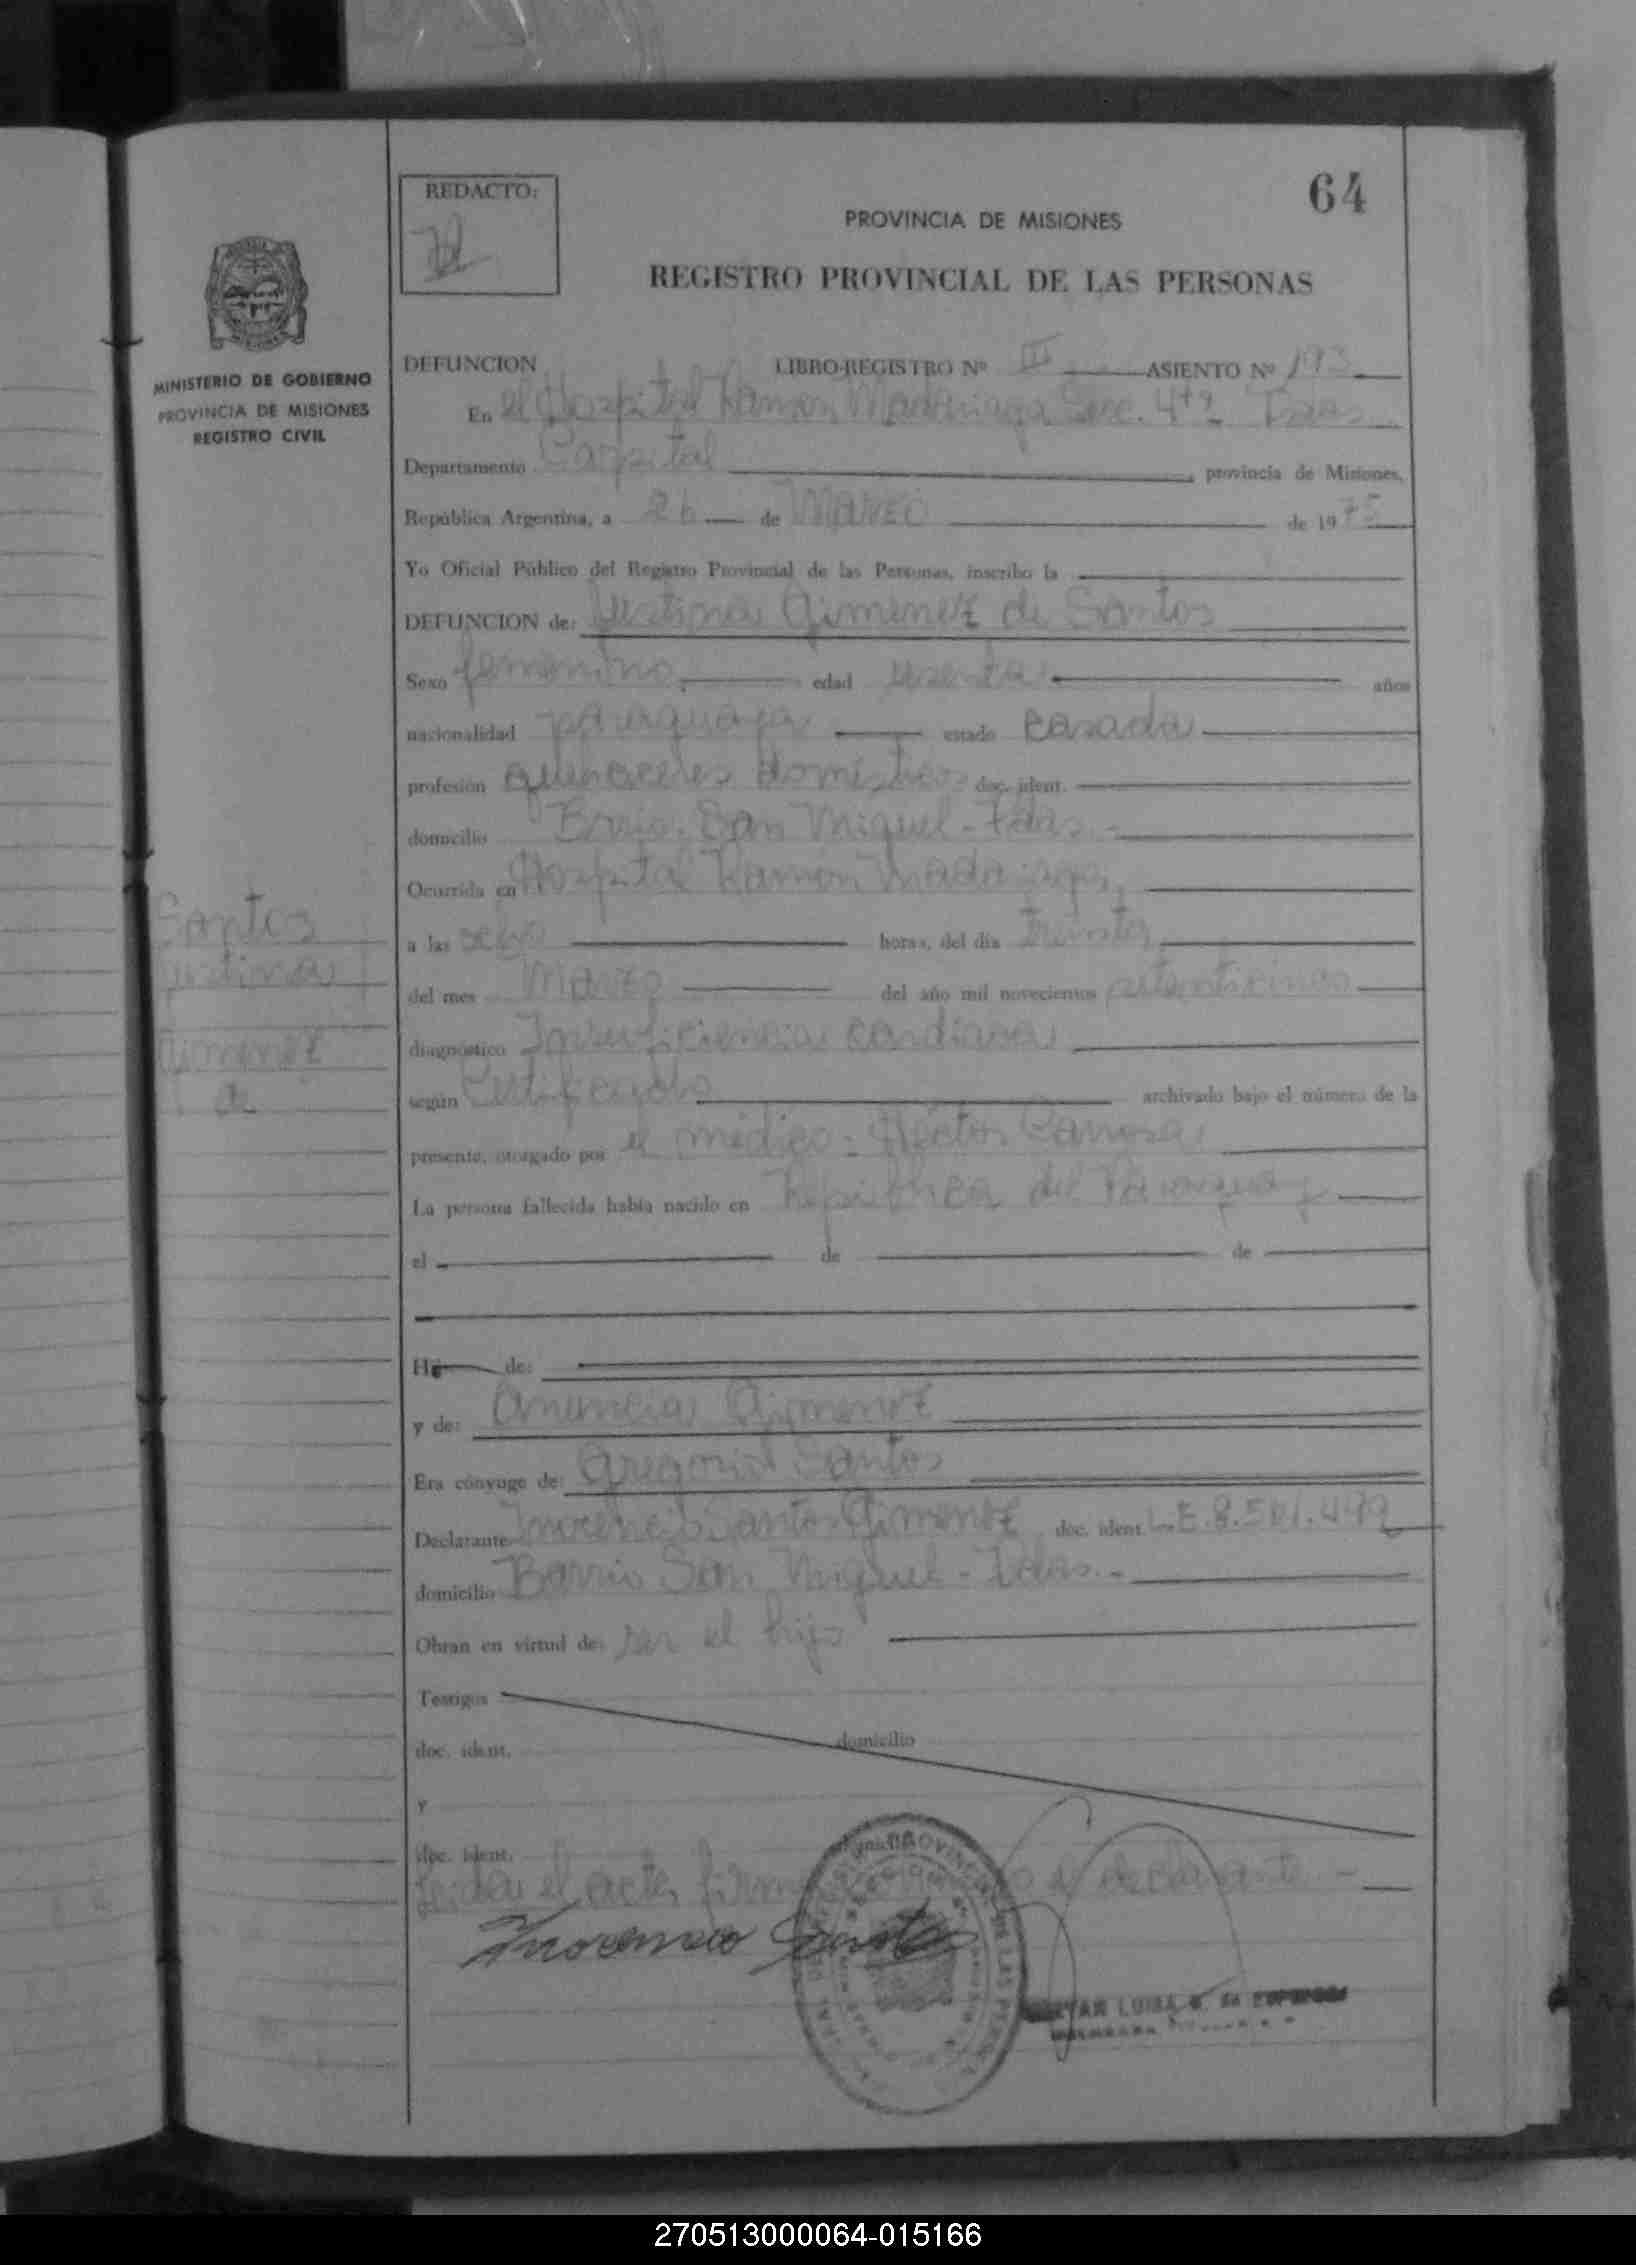 64
REDACTO:
PROVINCIA DE MISIONES
REGISTRO PROVINCIAL DE LAS PERSONAS
MINISTERIO DE GOBIERNO
PROVINCIA DE MISIONES
REGISTRO CIVIL
DEFUNCION LIBRO-REGISTRO Nº III ASIENTO Nº 193
En el Hospital Ramón Madariaga Secc. 4ta Pdas
Departamento Capital provincia de Misiones,
República Argentina, a de Marzo de 1975
Yo Oficial Público del Registro Provincial de las Personas, inscribo la
DEFUNCION de: Justina Gimenez de Santos
Sexo femenino edad años
nacionalidad paraguaya estado casada
profesión quehaceres domésticos doc. ident.
domicilio Barrio San Miguel - Pdas -
Ocurrida en Hospital Ramón Madariaga,
a las ocho horas, del día treinta
del mes Marzo del año mil novecientos setenticinco
diagnóstico Insuficiencia cardiaca
según Certificado archivado bajo el número de la
presente, otorgado por el médico: Héctor
La persona fallecida había nacido en República del Paraguay
el de de
Santos
Justina
Gimenez
de
Hij de:
y de: Anuncia Gimenez
Era cónyuge de: Gregorio Santos
Declarante Inocencio Santos Gimenez doc. ident. L.E. 8.501.499
domicilio Barrio San Miguel - Pdas. -
Obran en virtud de: ser el hijo
Testigos
doc. ident. domicilio
y
doc. ident.
Leida el acta, firma el declarante -
Inocencio Santos